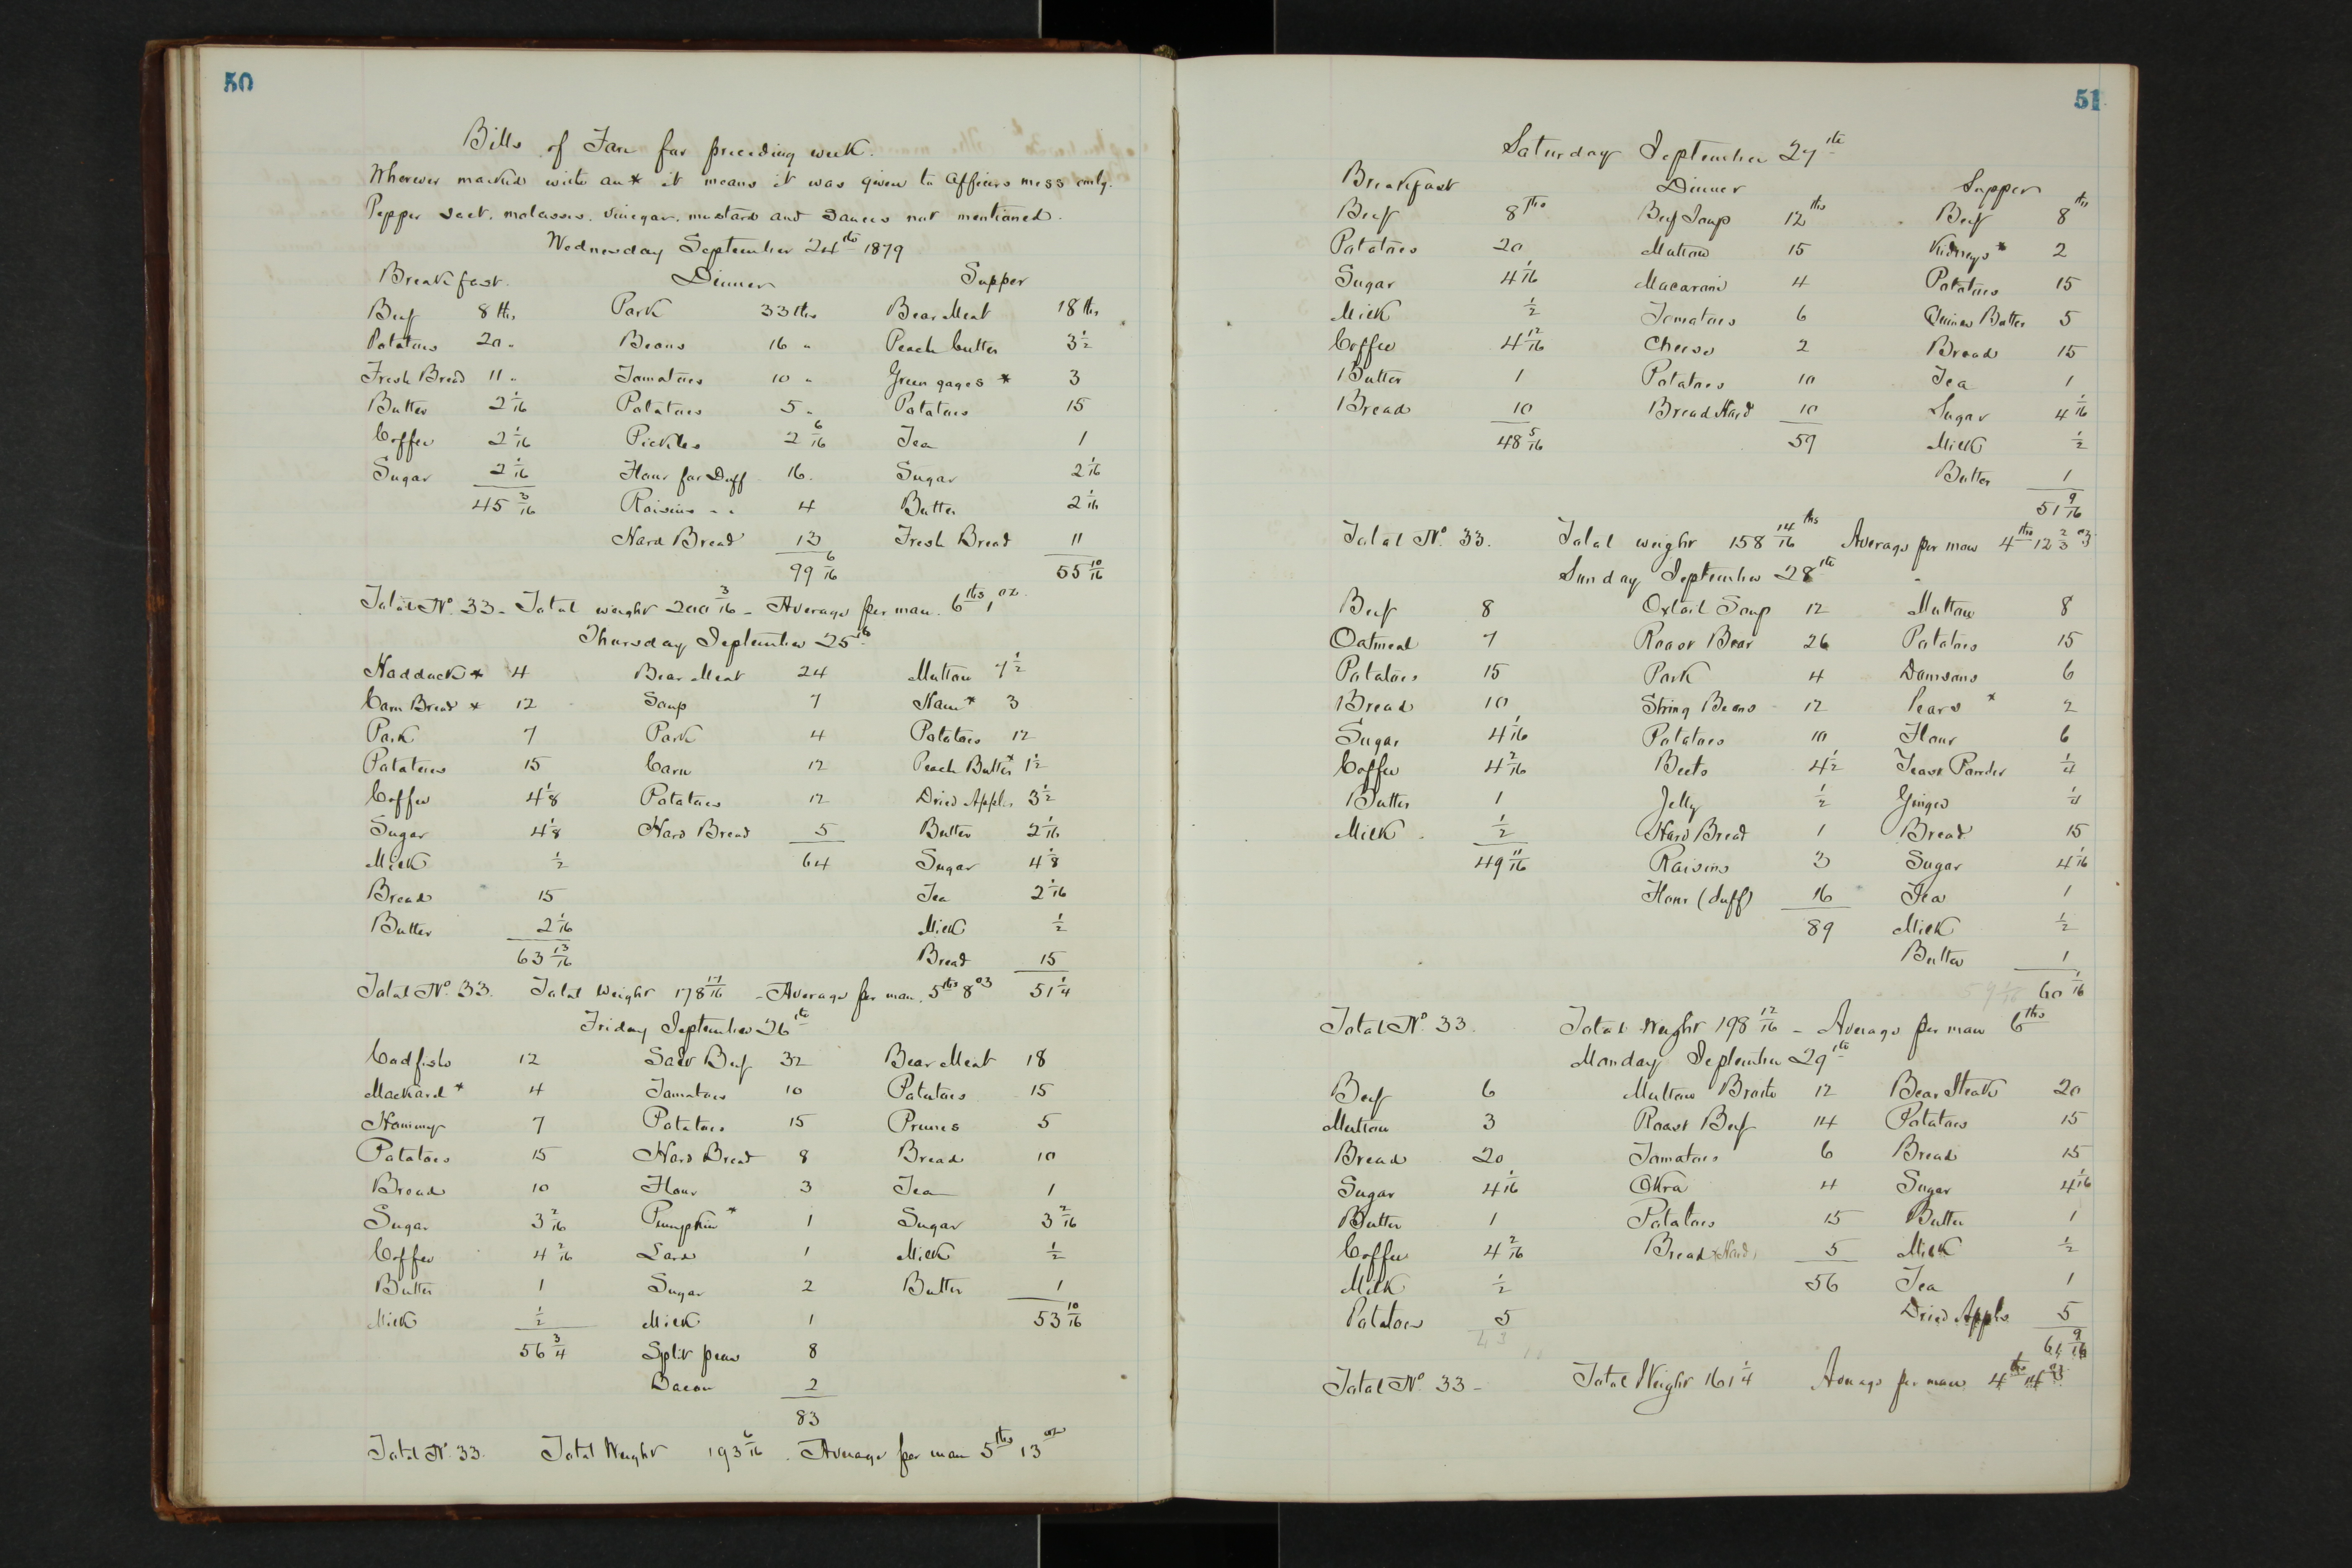 50
Bills of Fare for preceding week.
Wherever marked with an * it means it was given to Officers mess only.
Pepper salt, molasses, vinegar, mustard and sauces not mentioned.
Wednesday September 24th 1879
Breakfast. Dinner Supper
Beef 8 lbs Pork 33 lbs Bear Meat 18 lbs
Potatoes 20 " Beans 16 " Peach butter 3 1/2
Fresh Bread 11 " Tomatoes 10 " Green gages * 3
Butter 2 1/16 Potatoes 5 " Potatoes 15
Coffee 2 1/16 Pickles 2 6/16 Tea 1
Sugar 2 1/16 Flour for Duff 16. Sugar 2 1/16
45 3/16 Raisins " " 4 Butter 2 1/16
Hard Bread 13 Fresh Bread 11
99 6/16 55 10/16
Total No. 33 - Total weight 200 3/16 - Average per man. 6 lbs 1 oz.
Thursday September 25th
Hadduck * 4 Bear Meat 24 Mutton 7 1/2
Corn Bread * 12 Soup 7 Ham * 3
Pork 7 Pork 4 Potatoes 12
Potatoes 15 Corn 12 Peach Butter * 1 1/2
Coffee 4 1/8 Potatoes 12 Dried Apples 3 1/2
Sugar 4 1/8 Hard Bread 5 Butter 2 1/16
Milk 1/2 64 Sugar 4 1/8
Bread 15 Tea 2 1/16
Butter 2 1/16 Milk 1/2
63 13/16 Bread 15
Total No. 33. Total Weight 178 17/16 - Average per man. 5 lbs 8 oz 51 1/4
Friday September 26th
Codfish 12 Salt Beef 32 Bear Meat 18
Mackard * 4 Tomatoes 10 Potatoes 15
Hominy 7 Potatoes 15 Prunes 5
Potatoes 15 Hard Bread 8 Bread 10
Bread 10 Flour 3 Tea 1
Sugar 3 2/16 Pumpkin * 1 Sugar 3 2/16
Coffee 4 2/16 Lard 1 Milk 1/2
Butter 1 Sugar 2 Butter 1
Milk 1/2 Milk 1 53 10/16
56 3/4 Split peas 8
Bacon 2
83
Total No. 33. Total Weight 193 6/16. Average per man 5 lbs 13 oz
51
Saturday September 27th
Breakfast Dinner Supper
Beef 8 lbs Beef Soup 12 lbs Beef 8 lbs
Potatoes 20 Mutton 15 Kidneys * 2
Sugar 4 1/16 Macaroni 4 Potatoes 15
Milk 1/2 Tomatoes 6 Quince Butter 5
Coffee 4 12/16 Cheese 2 Bread 15
Butter 1 Potatoes 10 Tea 1
Bread 10 Bread Hard 10 Sugar 4 1/16
48 5/16 59 Milk 1/2
Butter 1
51 9/16
Total No. 33. Total weight 158 14/16 lbs Average per man 4 lbs 12 2/3 oz
Sunday September 28th
Beef 8 Oxtail Soup 12 Mutton 8
Oatmeal 7 Roast Bear 26 Potatoes 15
Potatoes 15 Pork 4 Damsons 6
Bread 10 String Beans 12 Pears * 2
Sugar 4 1/16 Potatoes 10 Flour 6
Coffee 4 2/16 Beets 4 1/2 Yeast Powder 1/4
Butter 1 Jelly 1/2 Ginger 1/4
Milk 1/2 Hard Bread 1 Bread 15
49 11/16 Raisins 3 Sugar 4 1/16
Flour (duff) 16 Tea 1
89 Milk 1/2
Butter 1
60 1/16
Total No. 33. Total Weight 198 12/16 - Average per man 6 lbs
Monday September 29th
Beef 6 Mutton Broth 12 Bear Steak 20
Mutton 3 Roast Beef 14 Potatoes 15
Bread 20 Tomatoes 6 Bread 15
Sugar 4 1/16 Okra 4 Sugar 4 1/16
Butter 1 Potatoes 15 Butter 1
Coffee 4 2/16 Bread (Hard) 5 Milk 1/2
Milk 1/2 56 Tea 1
Potatoes 5 Dried Apples 5
61 9/16
Total No. 33 - Total Weight 161 1/4 Average per man 4 lbs 14 oz